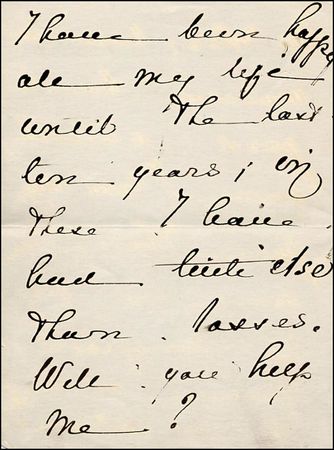 I have been happy
all my life
until the last
ten years; in
these I have
had little else
than losses.
Will you help
me?